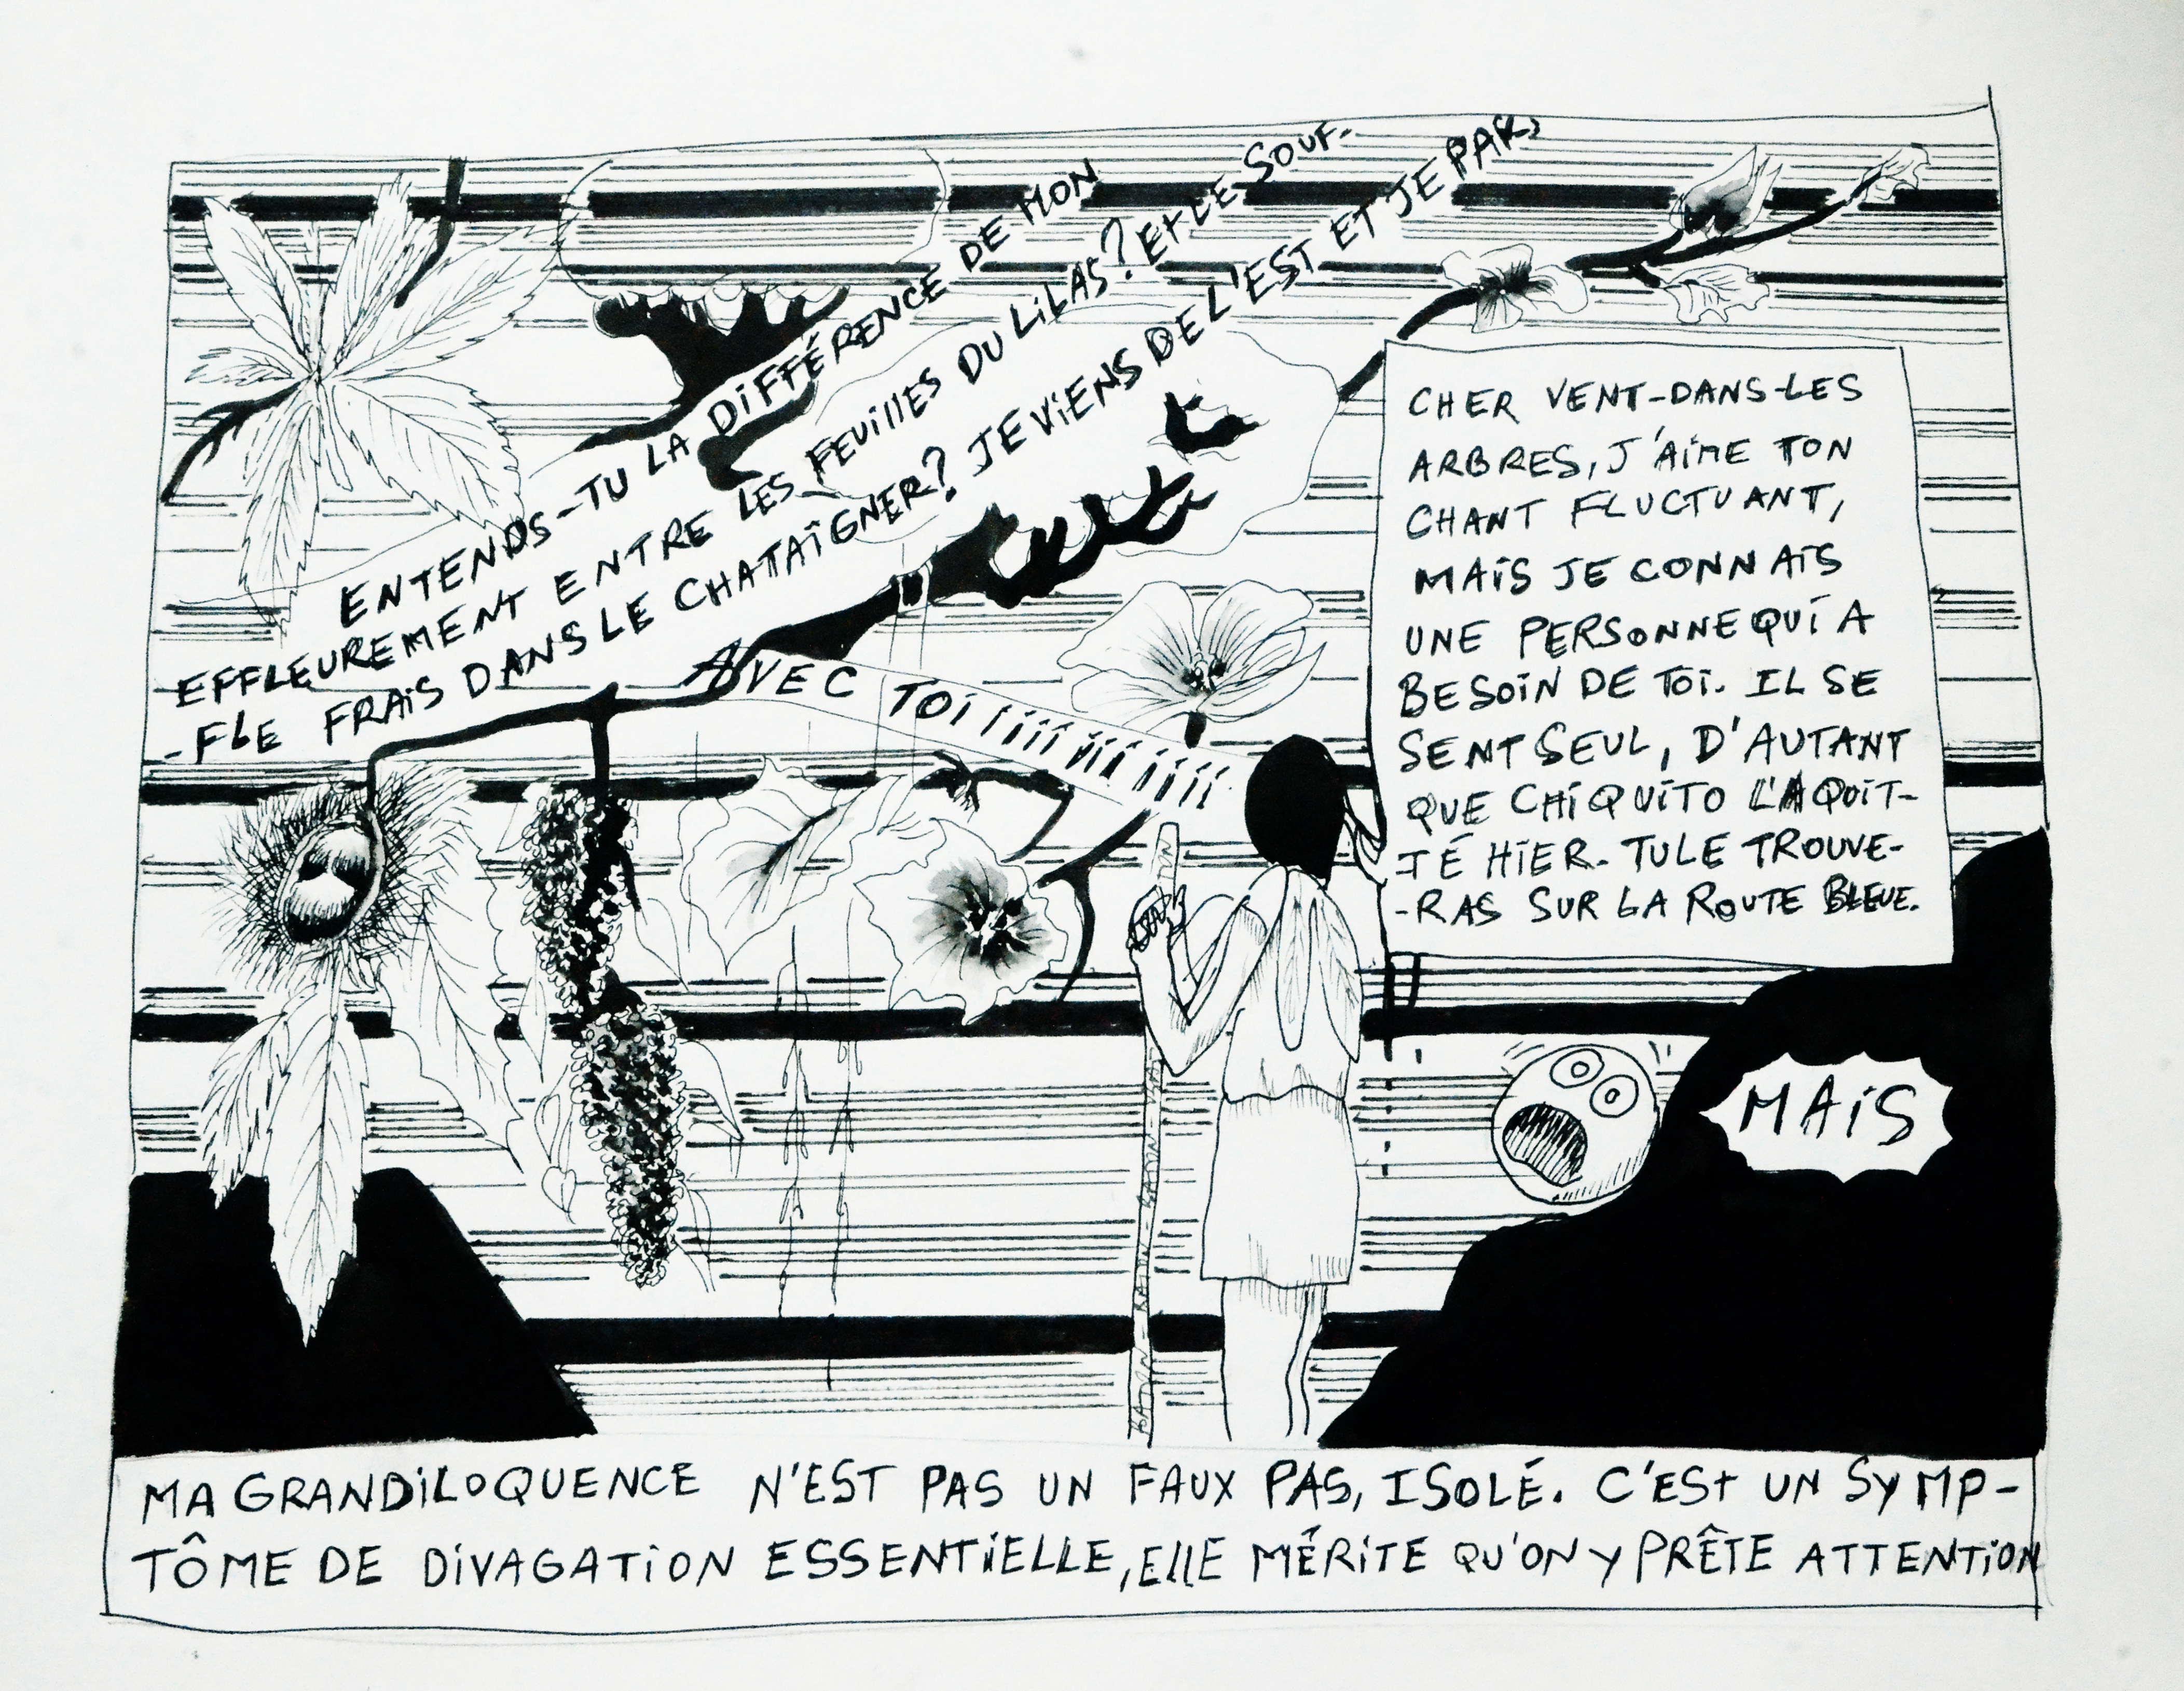 ENTENDS-TU LA DIFFÉRENCE DE MON
EFFLEUREMENT ENTRE LES FEUILLES DU LILAS? Et LE SOUF-
-FLE FRAIS DANS LE CHATAÎGNER? JE VIENS DE L'EST ET JE PAR,
AVEC TOI iiii iii iiii
CHER VENT-DANS-LES
ARBRES, J'AIME TON
CHANT FLUCTUANT,
MAIS JE CONNAIS
UNE PERSONNE QUI A
BESOIN DE TOI. IL SE
SENT SEUL, D'AUTANT
QUE CHIQUITO L'A QUIT-
TÉ HIER. TU LE TROUVE-
-RAS SUR LA ROUTE BLEUE.
MAIS
MA GRANDILOQUENCE N'EST PAS UN FAUX PAS, ISOLÉ. C'ESt UN SYMP-
TÔME DE DIVAGATION ESSENTIELLE, ELLE MÉRITE QU'ON Y PRÊTE ATTENTION